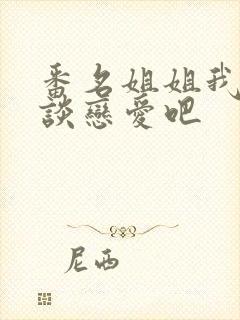 番名姐姐我
談戀愛吧
尼西